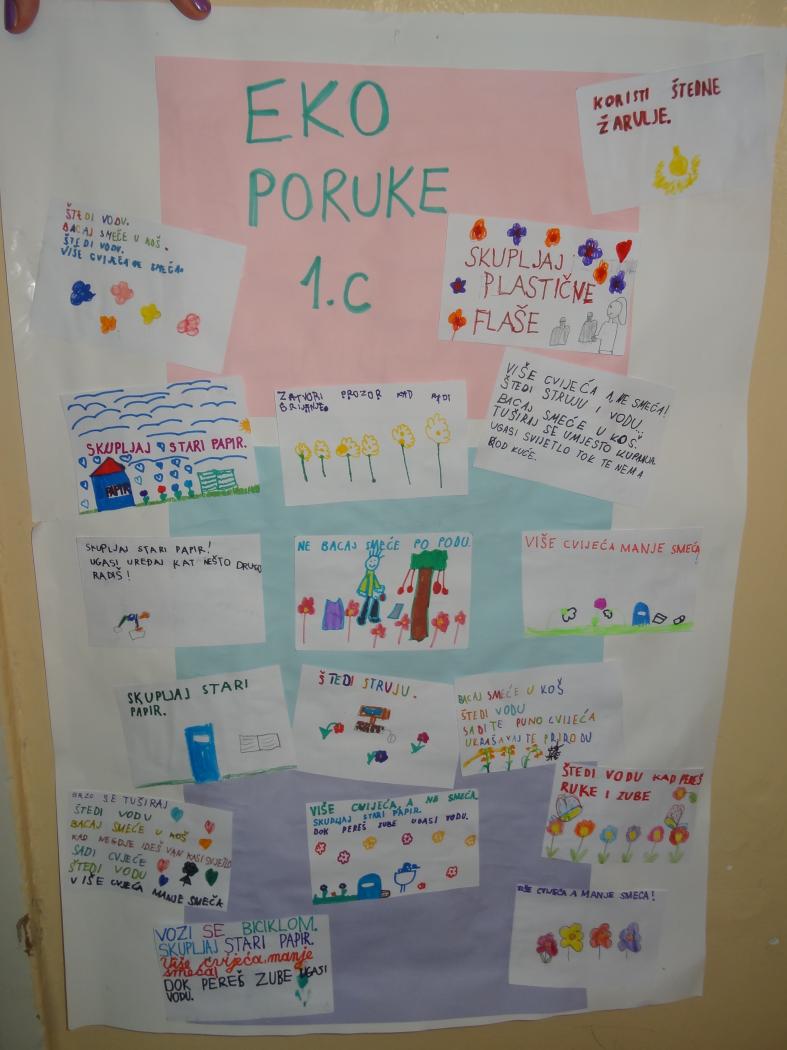 EKO
PORUKE
1.C
KORISTI ŠTEDNE
ŽARULJE.
ŠTEDI VODU.
BACAJ SMEĆE U KOŠ.
ŠTEDI VODU.
VIŠE CVIJEĆA NE SMEĆA.
SKUPLJAJ
PLASTIČNE
FLAŠE
SKUPLJAJ STARI PAPIR.
PAPIR
ZATVORI PROZOR KAD RADI
GRIJANJE.
VIŠE CVIJEĆA A NE SMEĆA!
ŠTEDI STRUJU I VODU.
BACAJ SMEĆE U KOŠ.
TUŠIRAJ SE UMJESTO KUPANJA.
UGASI SVIJETLO TOK TE NEMA
KOD KUĆE.
SKUPLJAJ STARI PAPIR!
UGASI UREĐAJ KAT NEŠTO DRUGO
RADIŠ!
NE BACAJ SMEĆE PO PODU.
VIŠE CVIJEĆA MANJE SMEĆA
!
SKUPLJAJ STARI
PAPIR.
ŠTEDI STRUJU.
BACAJ SMEĆE U KOŠ
ŠTEDI VODU
SADITE PUNO CVIJEĆA
UKRAŠAVAJTE PRIRODU
BRZO SE TUŠIRAJ
ŠTEDI VODU
BACAJ SMEĆE U KOŠ
KAD NEGDJE IDEŠ VAN
SADI CVJEĆE
ŠTEDI VODU
VIŠE CVJEĆA MANJE SMEĆA
VIŠE CVIJEĆA, A NE SMEĆA.
SKUPLJAJ STARI PAPIR.
DOK PEREŠ ZUBE UGASI VODU.
ŠTEDI VODU KAD PEREŠ
RUKE I ZUBE
VIŠE CVIJEĆA A MANJE SMEĆA!
VOZI SE BICIKLOM.
SKUPLJAJ STARI PAPIR.
Više cvijeća, manje
smeća!
DOK PEREŠ ZUBE UGASI
VODU.